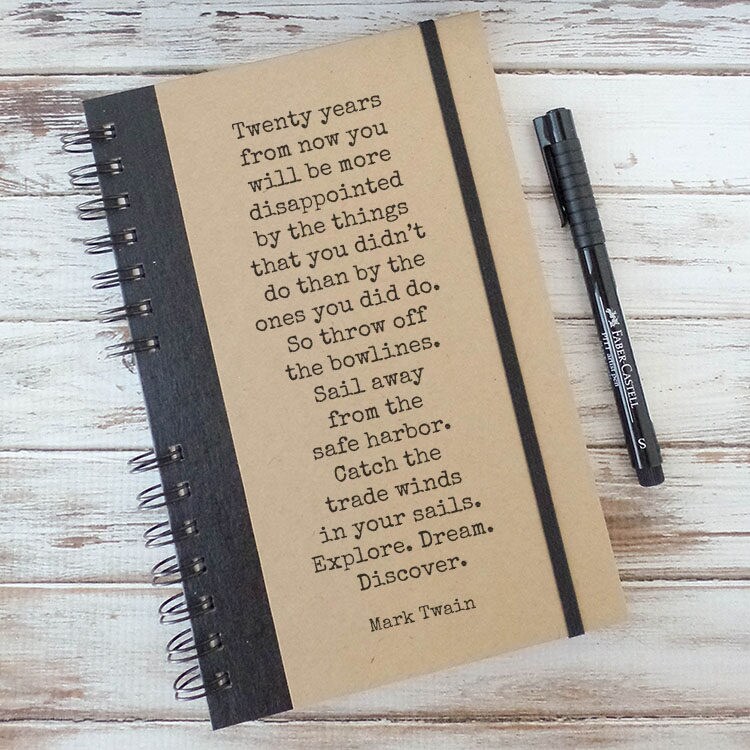 Twenty years
from now you
will be more
disappointed
by the things
that you didn't
do than by the
ones you did do.
So throw off
the bowlines.
Sail away
from the
safe harbor.
Catch the
trade winds
in your sails.
Explore. Dream.
Discover.
Mark Twain
FABER-CASTELL
PITT artist pen
S